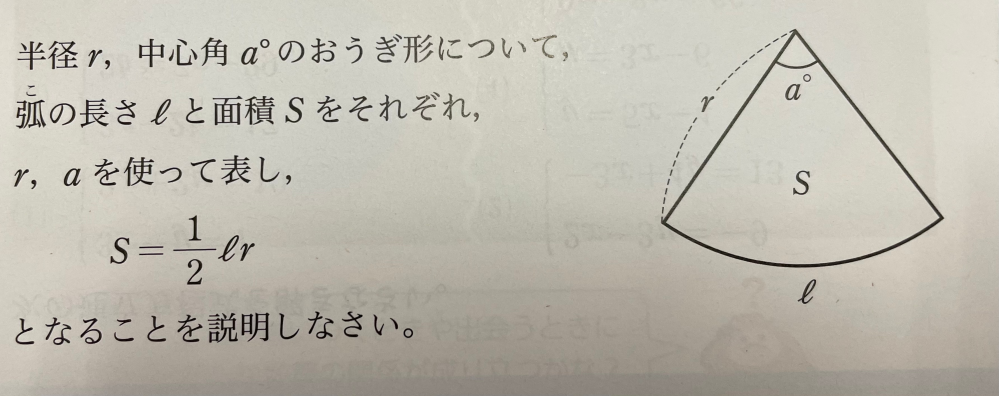 半径 r，中心角 a°のおうぎ形について，
こ
弧の長さ ℓ と面積 S をそれぞれ，
r，a を使って表し，
S = 1/2 ℓr
となることを説明しなさい。
a°
r
S
ℓ